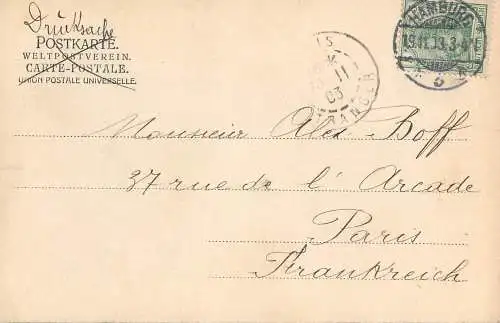 Drucksache
POSTKARTE.
WELTPOSTVEREIN.
CARTE-POSTALE.
UNION POSTALE UNIVERSELLE.
HAMBURG
19.11.03.3-4
5
11
03
ETRANGER
Monsieur Alex Boff
37 rue de l' Arcade
Paris
Frankreich